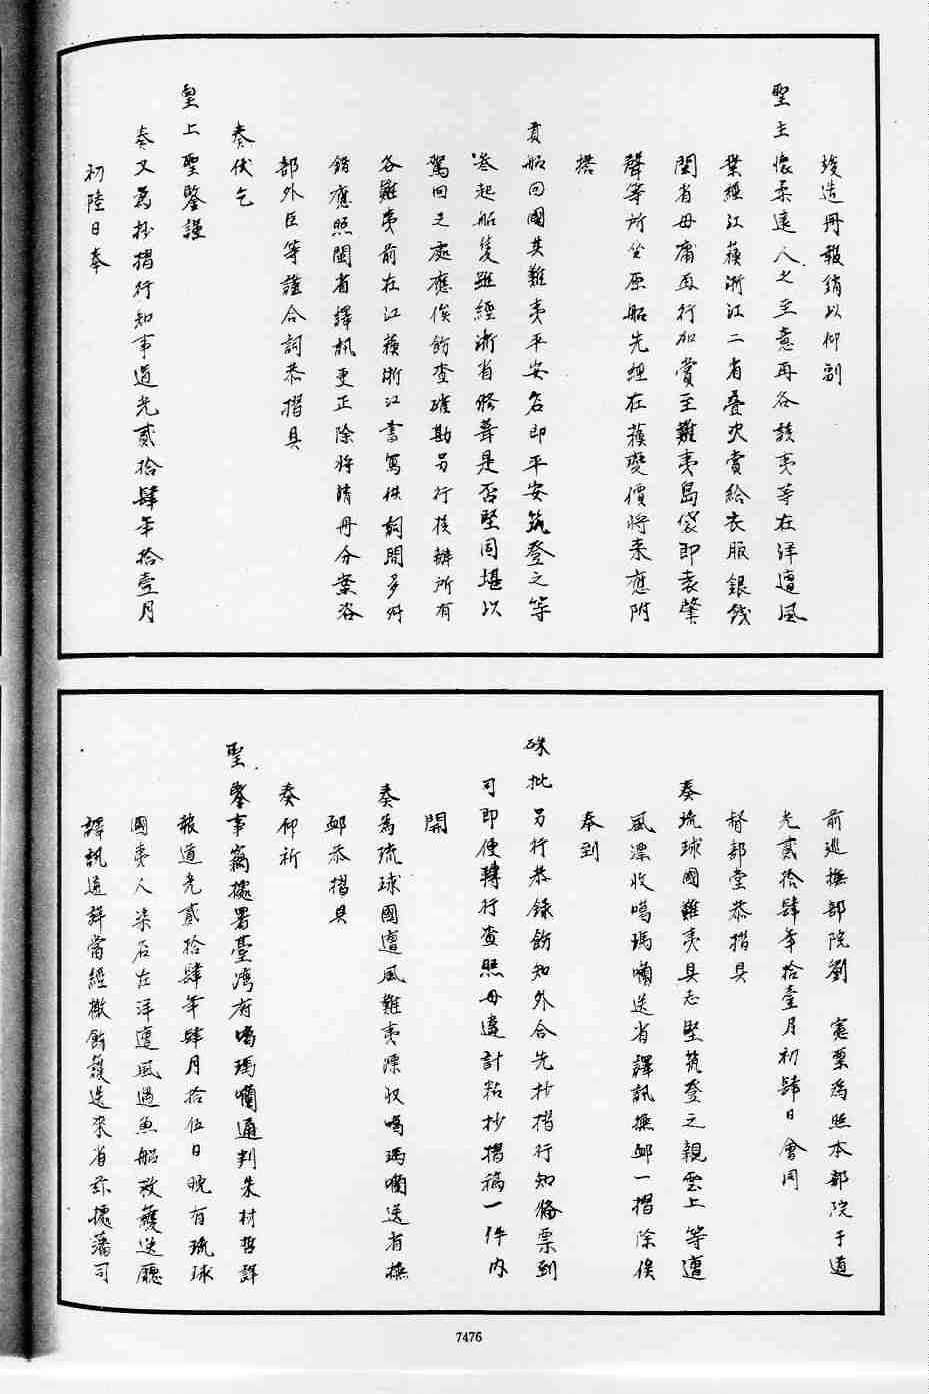 竣造冊報銷以仰副
聖主懷柔遠人之至意再各該夷等在洋遭風
業經江蘓浙江二省疊次賞給衣服銀錢
閩省毋庸再行加賞至難夷島袋即袁肇
聲等所坐原船先經在蘓變價將來應附
搭
貢船回國其難夷平安名即平安筑登之等
叁起船隻雖經浙省修葺是否堅固堪以
駕回之處應俟飭查確勘另行核辦所有
各難夷前在江蘓浙江書寫供詞間多舛
錯應照閩省譯訊更正除將清冊分案咨
部外臣等謹合詞恭摺具
奏伏乞
皇上聖鑒謹
奏又為抄摺行知事道光貳拾肆年拾壹月
初陸日奉
前巡撫部院劉 憲票為照本部院于道
光貳拾肆年拾壹月初肆日會同
督部堂恭摺具
奏琉球國難夷具志堅筑登之親雲上等遭
風漂收噶瑪囒送省譯訊撫卹一摺除俟
奉到
硃批另行恭錄飭知外合先抄摺行知備票到
司即便轉行查照毋違計粘抄摺稿一件內
開
奏為琉球國遭風難夷漂收噶瑪囒送省撫
卹恭摺具
奏仰祈
聖鑒事竊據署臺灣府噶瑪囒通判朱材哲詳
報道光貳拾肆年肆月拾伍日晚有琉球
國夷人柒名在洋遭風遇魚船救護送廳
譯訊通詳當經檄飭護送來省茲據藩司
7476